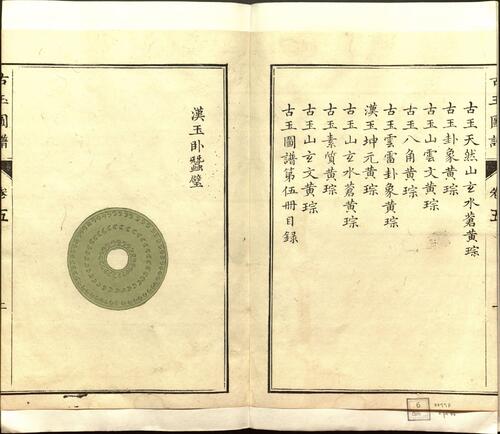 古玉圖譜
卷五
古玉天然山玄水蒼黃琮
古玉卦象黃琮
古玉山雲文黃琮
古玉八角黃琮
古玉雲雷卦象黃琮
漢玉坤元黃琮
古玉山玄水蒼黃琮
古玉素質黃琮
古玉山玄文黃琮
古玉圖譜第伍冊目錄
漢玉臥蠶璧
古玉圖譜
卷五
6